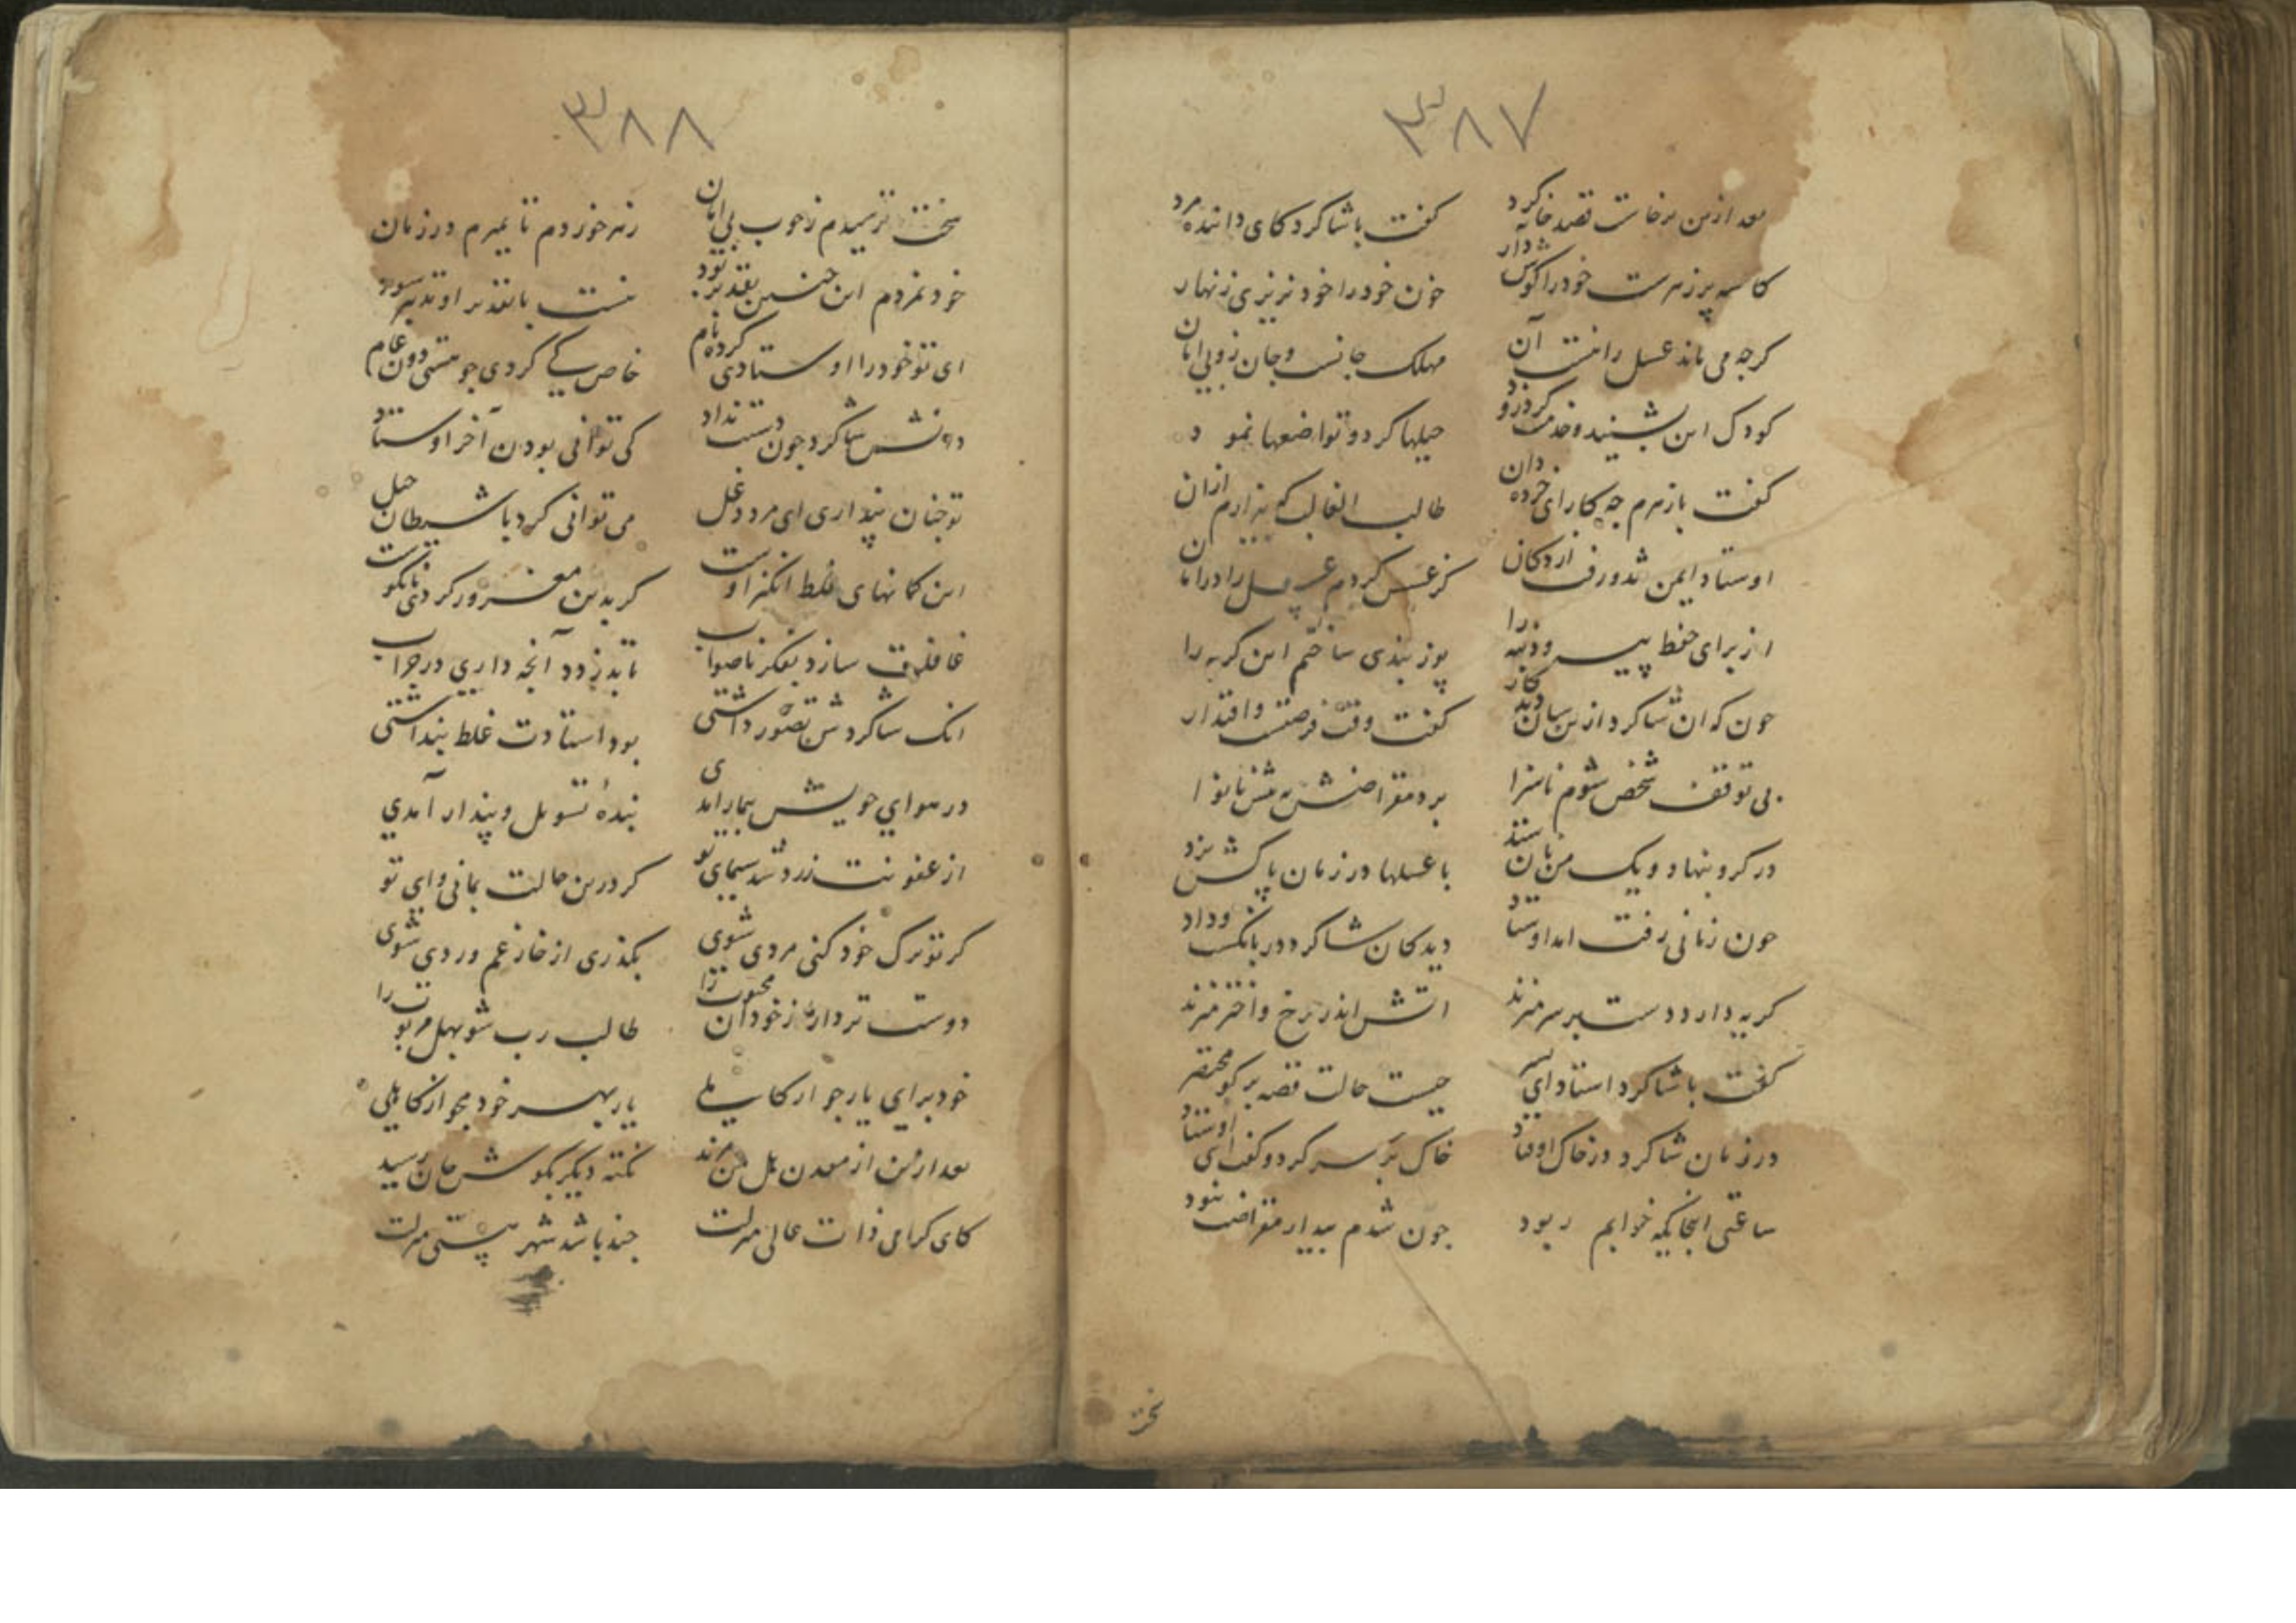 ۳۸۷
بعد ازین برخاست قصد خانه کرد کفت با شاکرد کای داننده مرد
کاسه پر زهرست خود را کوش دار خون خود را خود نریزی زنهار
کرچه می ماند عسل را نیست آن مهلک جانست و جان زو بی امان
کودک این بشنید و خدمت کرد زود حیلها کرد و تواضعها نمود
کفت با زهرم چه کار ای خرده دان طالب الغالب که بیزارم ازان
اوستاد ایمن شد و رفت از دکان
از برای حفظ پیه و دنبه را پوز بندی ساختم این کربه را
چون که ان شاکرد ازین سان دید کار کفت وقت فرصتست و اقتدار
بی توقف شخص شوم ناسزا برد مقراضش به پیش نانوا
در کرو بنهاد و یک من نان ستد با عسلها در زمان پاکش بزد
چون زمانی رفت امد اوستاد دید کان شاکرد در بانکست و داد
کریه دارد دست بر سر میزند اتش اندر چرخ و اختر میزند
کفت با شاکرد استاد ای پسر چیست حالت قصه بر کو مختصر
در زمان شاکرد در خاک اوفتاد خاک بر سر کرد و کفت ای اوستاد
ساعتی اینجایکه خوابم ربود چون شدم بیدار مقراضت نبود
سخت
۳۸۸
سخت ترسیدم ز چوب بی امان زهر خوردم تا بمیرم در زمان
خود نمردم این چنین تقدیر بود نیست با تقدیر او تدبیر سود
ای تو خود را اوستادی کرده نام خاص کی کردی چو هستی دون عام
دانش شاکرد چون دستت نداد کی توانی بودن آخر اوستاد
تو چنان پنداری ای مرد دغل می توانی کرد با شیطان حیل
این کمانهای غلط انکیز اوست کر بدین مغرور کردی نانکوست
غافلت سازد بفکر ناصواب تا بدزدد آنچه داری در جراب
انک شاکردش تصور داشتی بود استادت غلط پنداشتی
در هوای خویش بیمار امدی بندهٔ تسویل و پندار آمدی
از عفونت زرد شد سیمای تو کر درین حالت بمانی وای تو
کر تو ترک خود کنی مردی شوی بکذری از خار غم وردی شوی
دوست تر دار از خود ان محبوب را طالب رب شو بهل مربوب را
خود برای یار جو ار کاملی یار بهر خود مجو از کاهلی
بعد ازین از معدن هل من مزید نکته دیکر بکوش جان رسید
کای کرامی ذات عالی منزلت چند باشد شهر هستی منزلت